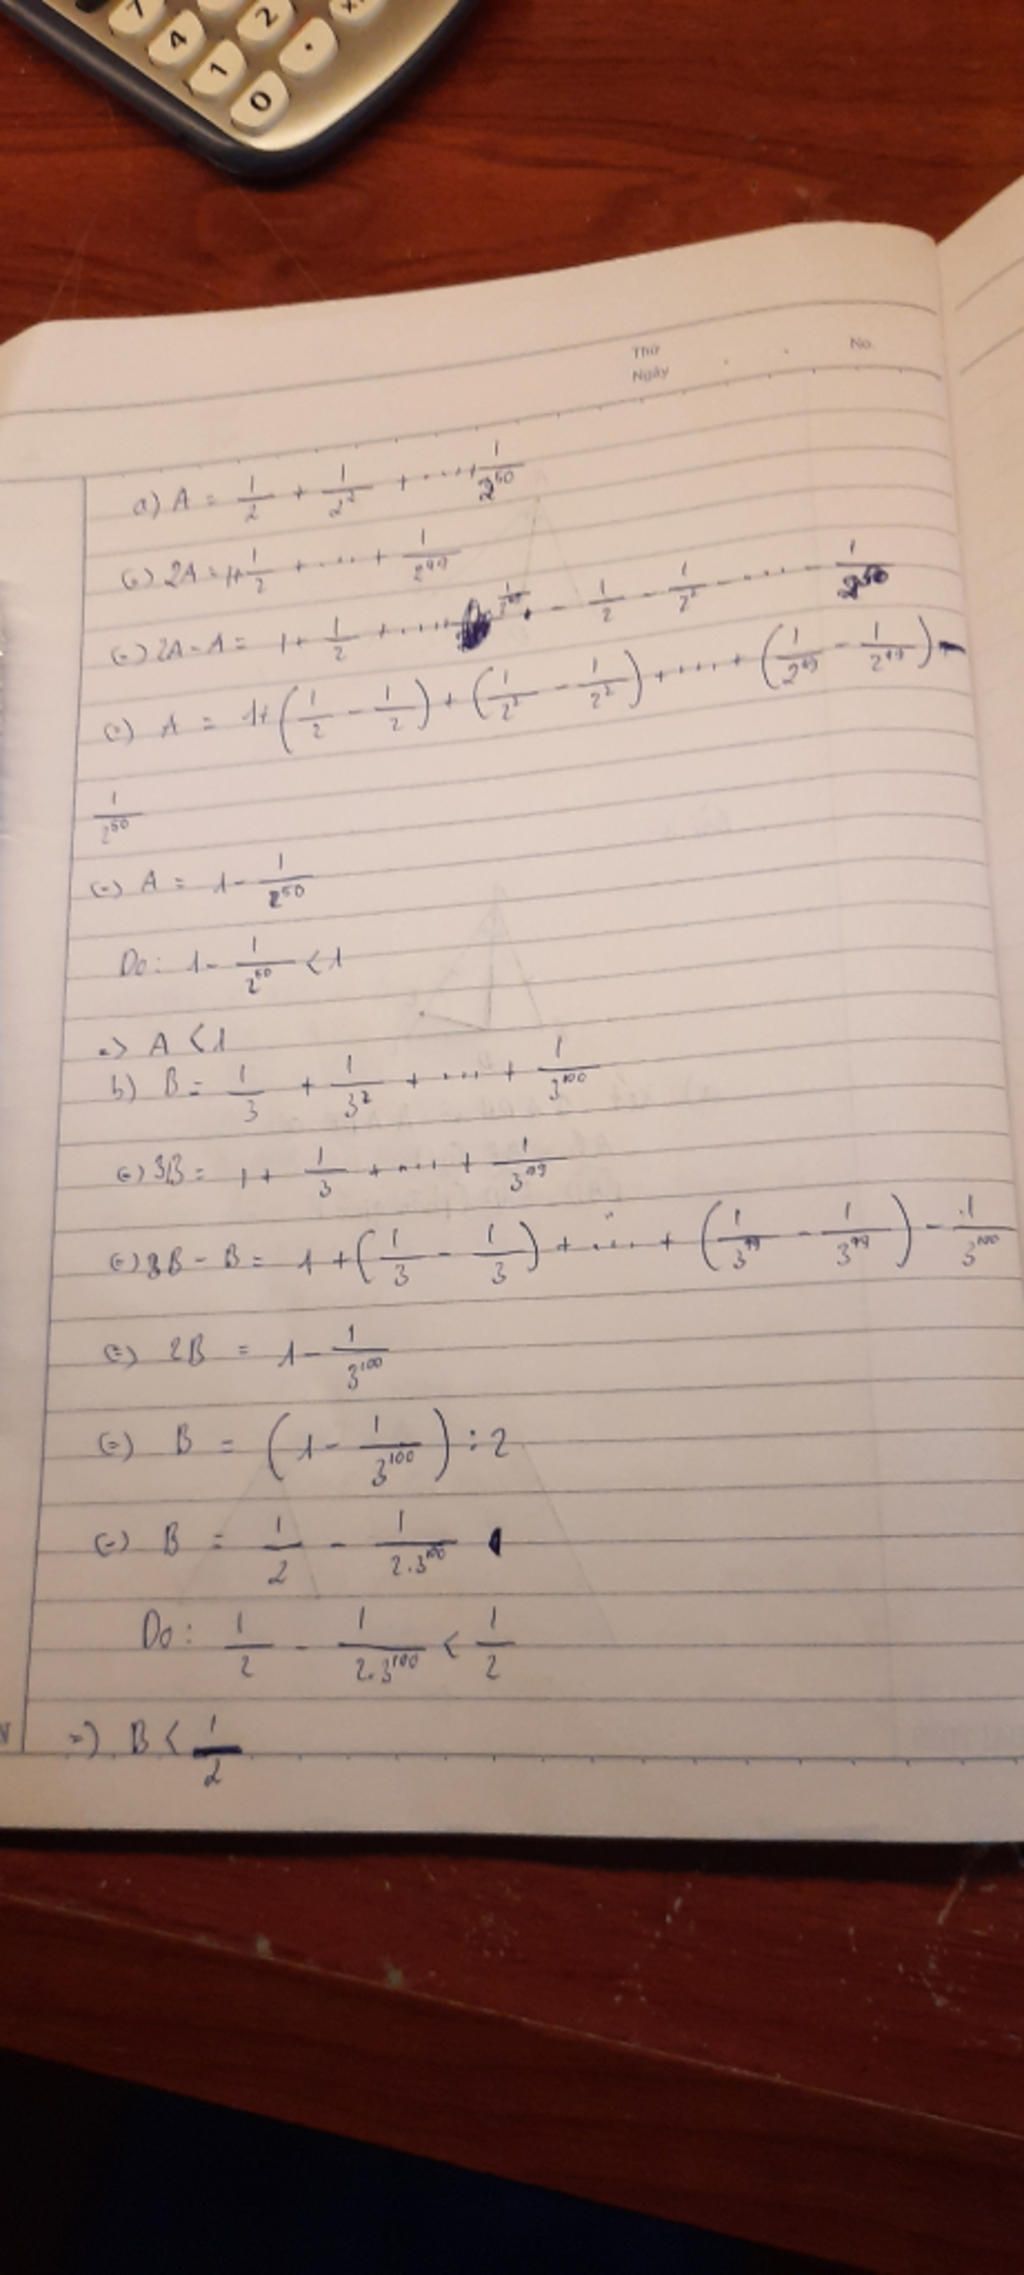 7
4
1
2
0
.
Thứ
Ngày
No.
a) A = 1/2 + 1/2² + ....+ 1/2⁵⁰
(=) 2A = 1+ 1/2 + .... + 1/2⁴⁹
(=) 2A - A = 1 + 1/2 + ..... 1/2⁴⁹ - 1/2 - 1/2² - .... - 1/2⁵⁰
(=) A = 1+ (1/2 - 1/2) + (1/2² - 1/2²) + .... + (1/2⁴⁹ - 1/2⁴⁹) -
1/2⁵⁰
(=) A = 1 - 1/2⁵⁰
Do: 1 - 1/2⁵⁰ < 1
=> A < 1
b) B = 1/3 + 1/3² + .... + 1/3¹⁰⁰
(=) 3B = 1 + 1/3 + .... + 1/3⁹⁹
(=) 3B - B = 1 + (1/3 - 1/3) + .... + (1/3⁹⁹ - 1/3⁹⁹) - 1/3¹⁰⁰
(=) 2B = 1 - 1/3¹⁰⁰
(=) B = (1 - 1/3¹⁰⁰) : 2
(=) B = 1/2 - 1/2.3¹⁰⁰
Do: 1/2 - 1/2.3¹⁰⁰ < 1/2
=) B < 1/2